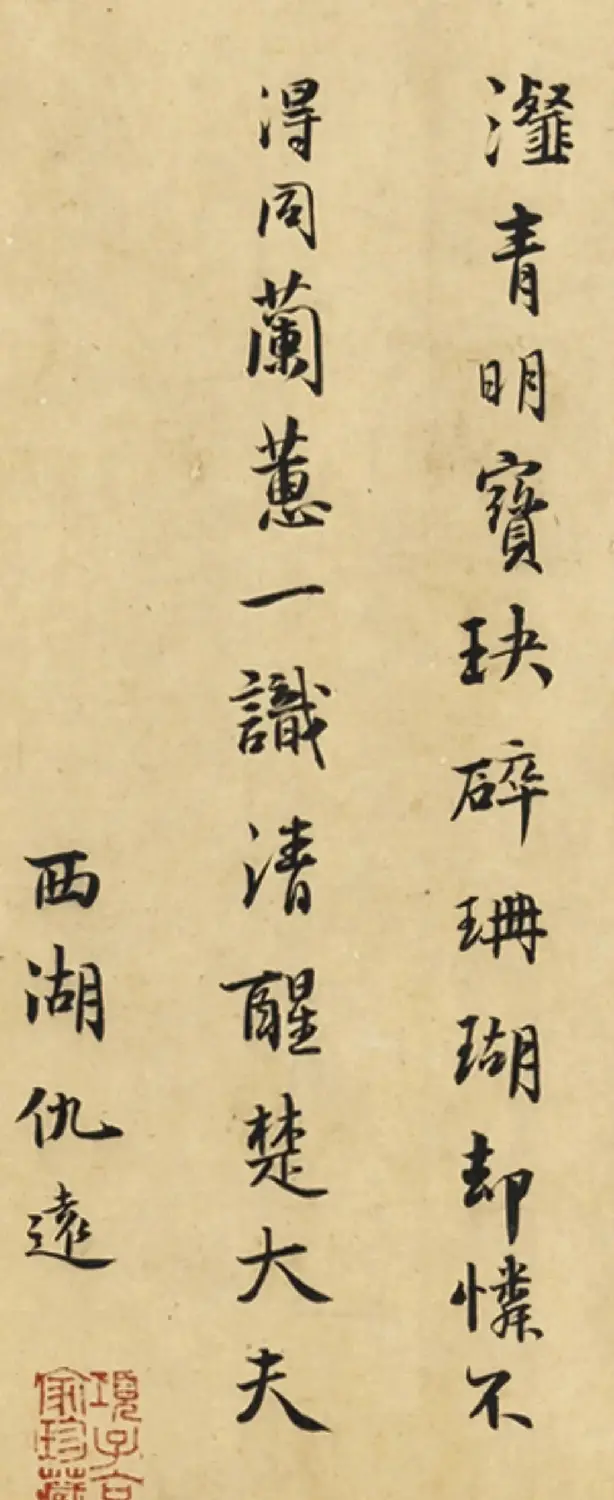 瀣青明寶玦碎珊瑚却憐不
得同蘭蕙一識清醒楚大夫
西湖仇遠
項子京
家珍藏